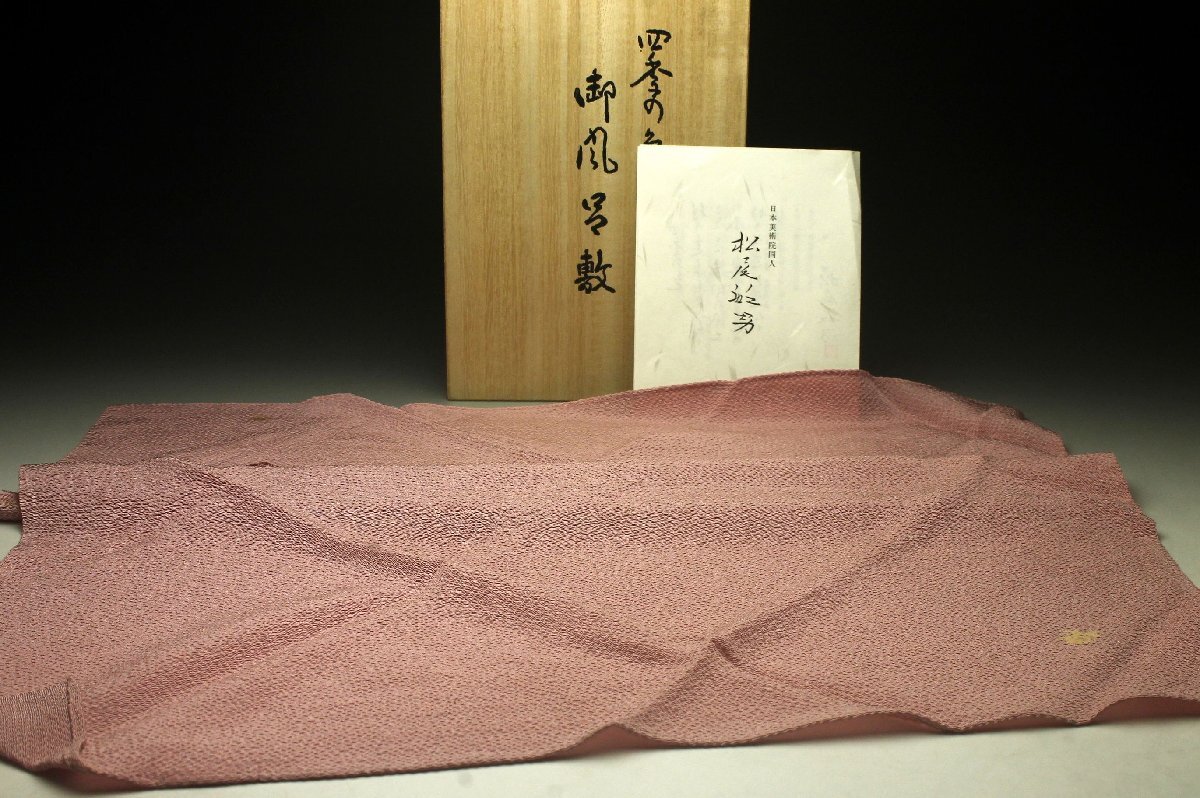 四季の
御風呂敷
日本美術院同人
松尾敏男